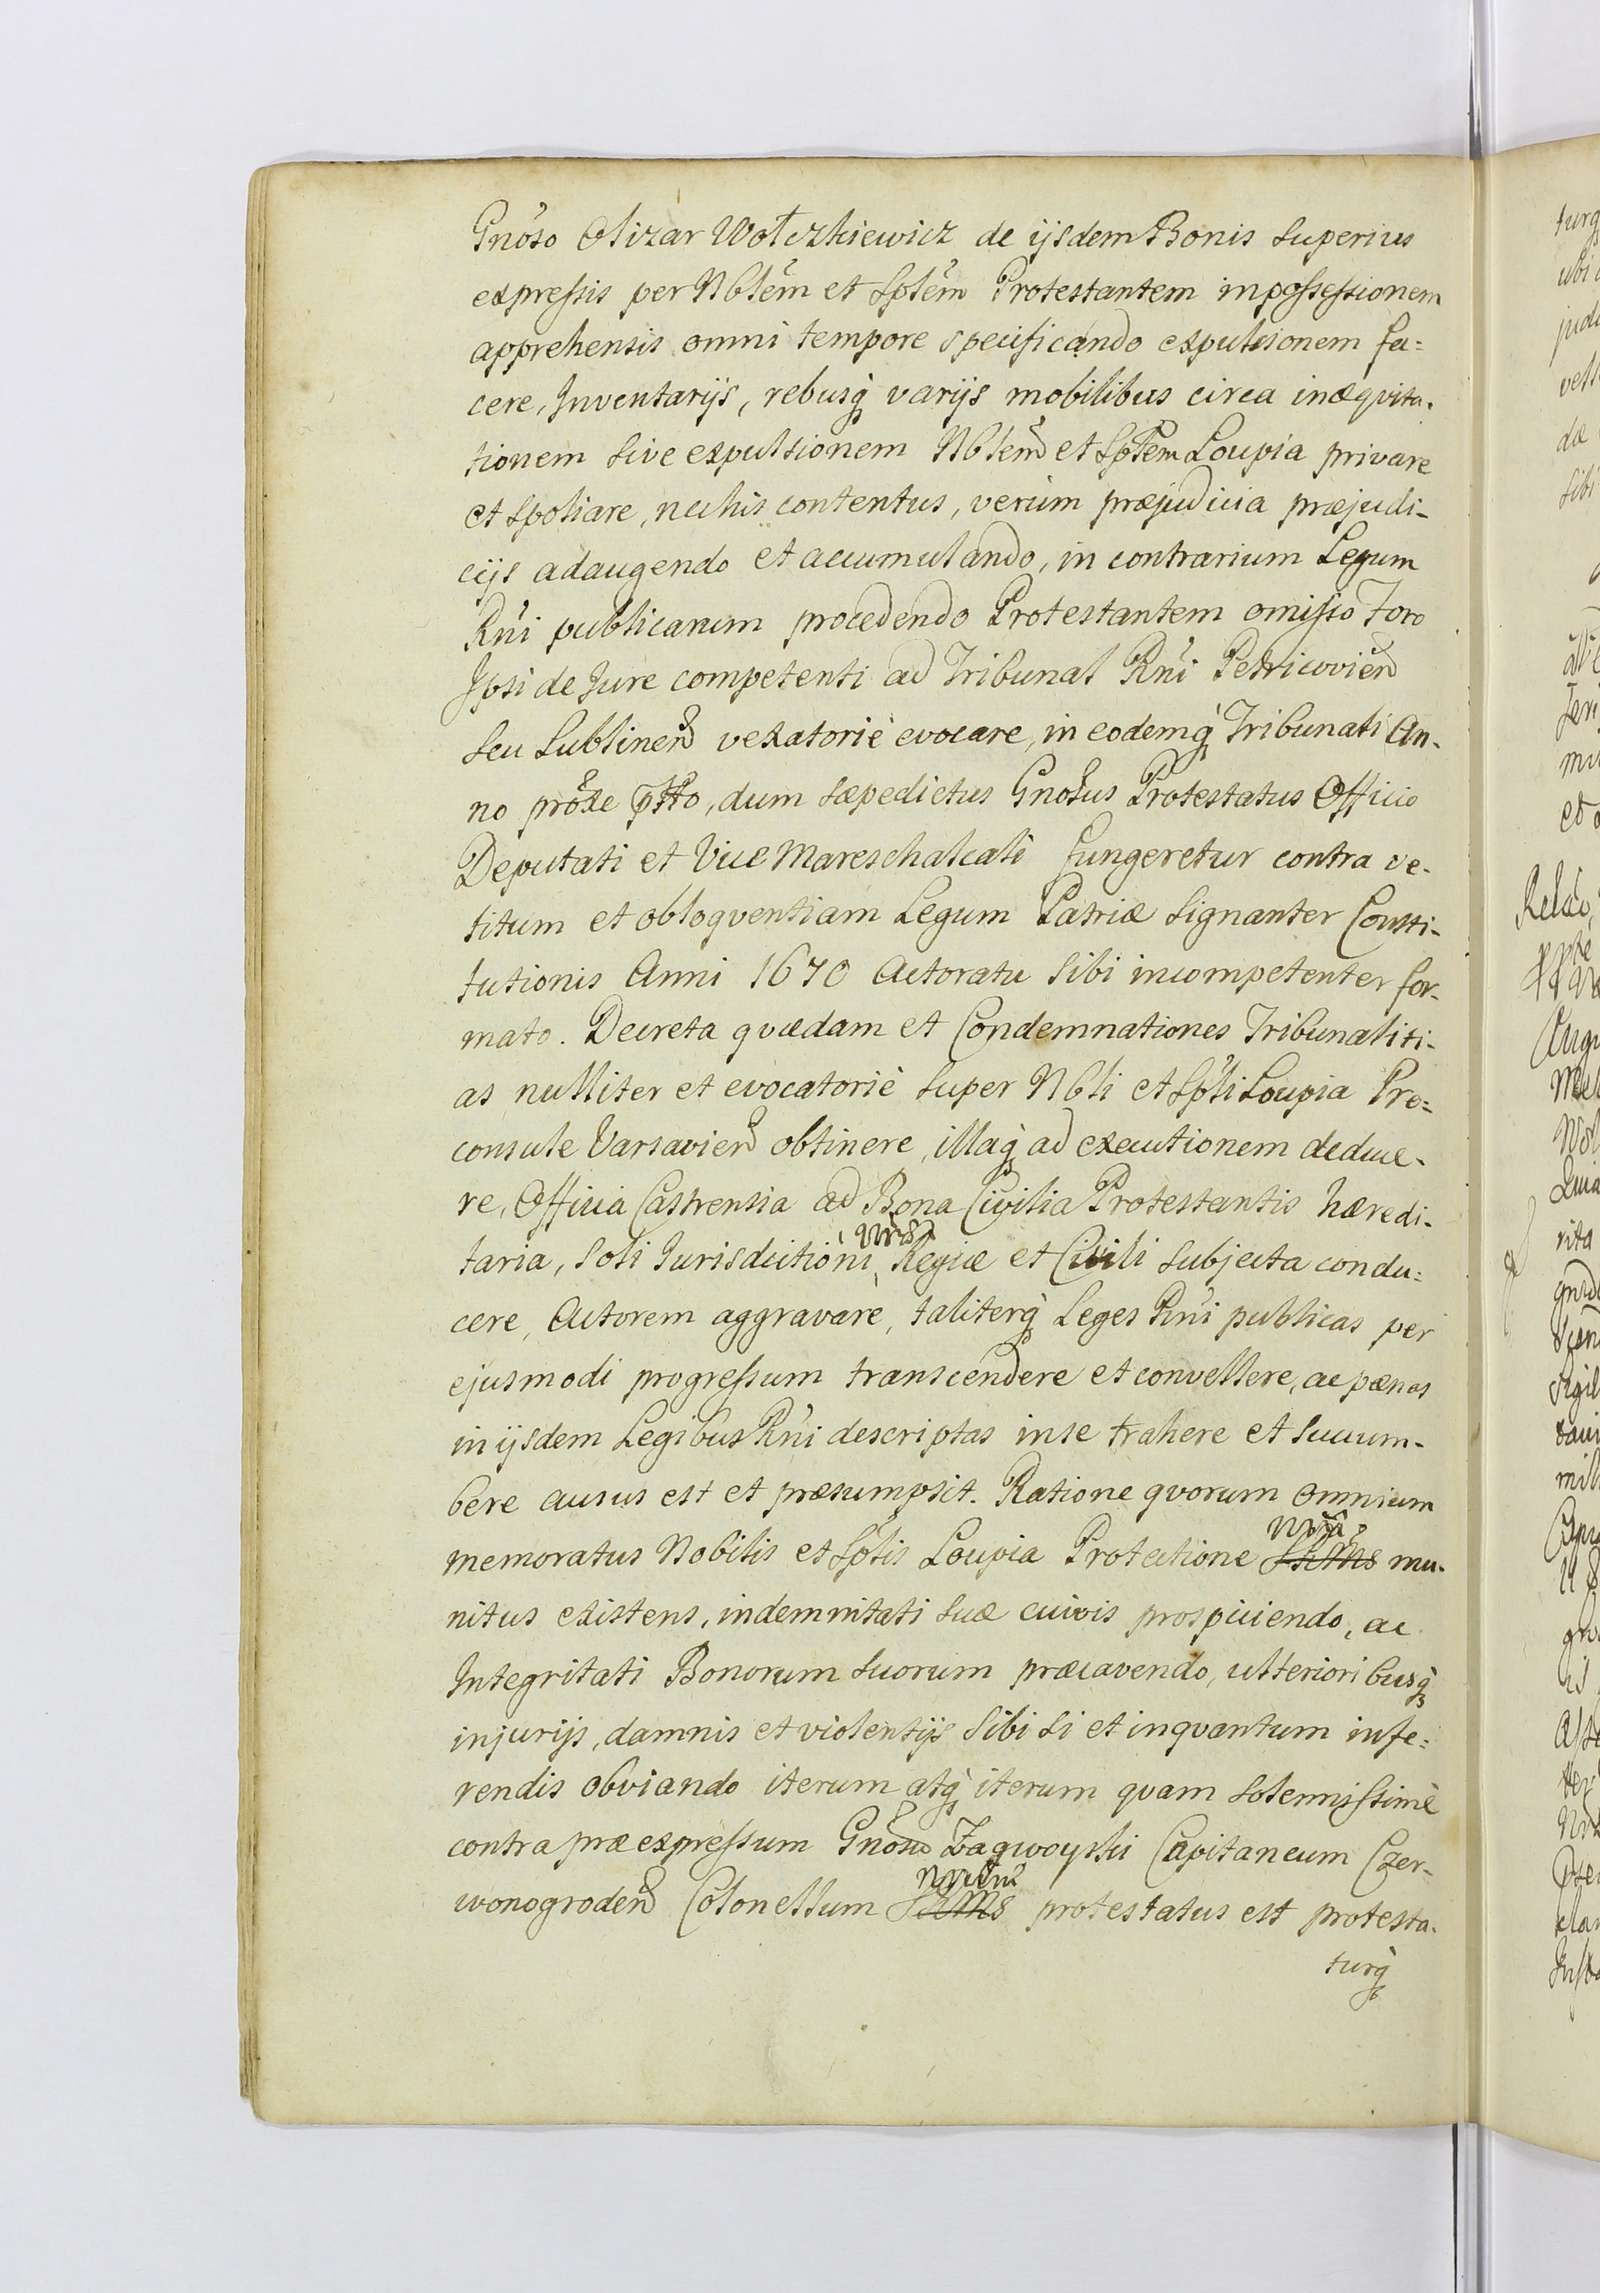 Gnoso Olizar Wołczkiewicz de ijsdem Bonis superius
expressis per Nblem et Splem Protestantem in possessionem
apprehensis omni tempore specificando expulsionem fa=
cere, Inventarijs, rebusq varijs mobilibus circa inæqvita-
tionem sive expulsionem Nblem et Splem Loupia privare
et spoliare, nec his contentus, verùm præjudicia præjudi-
cijs adaugendo et accumulando, in contrarium Legum
Rni publicarum procedendo Protestantem omisso Foro
Ipsi de Jure competenti ad Tribunal Rni Petricovien
seu Lublinen vexatoriè evocare, in eodemq Tribunali An-
no proxe ptto, dum sæpedictus Gnosus Protestatus Officio
Deputati et Vice Mareschalcali fungeretur contra ve-
titum et obloqventiam Legum Patriæ signanter Consti-
tutionis Anni 1670 Actoratu sibi incompetenter for-
mato. Decreta qvædam et Condemnationes Tribunaliti-
as nulliter et evocatoriè super Nbli et Spli Loupia Pro=
consule Varsavien obtinere, illaq ad executionem deduce-
re, Officia Castrensia ad Bona Civilia Protestantis hæredi-
taria, soli Jurisdictioni Regiæ et Civili subjecta condu=
cere, Actorem aggravare, taliterq Leges Rni publicas per
ejusmodi progressum transcendere et convellere, ac pænas
in ijsdem Legibus Rni descriptas in se trahere et succum-
bere ausus est et præsumpsit. Ratione qvorum omnium
memoratus Nobilis et Splis Loupia Protectione mu-
nitus existens, indemnitati suæ cuivis prospiciendo, ac
Integritati Bonorum suorum præcavendo, ulterioribusq
injurijs, damnis et violentijs sibi si et inqvantum infe=
rendis obviando iterum atq iterum qvam solemnissimè
contra præexpressum Gnosu Zagwoyski Capitaneum Czer-
wonogroden Colonellum protestatus est protesta-
turq